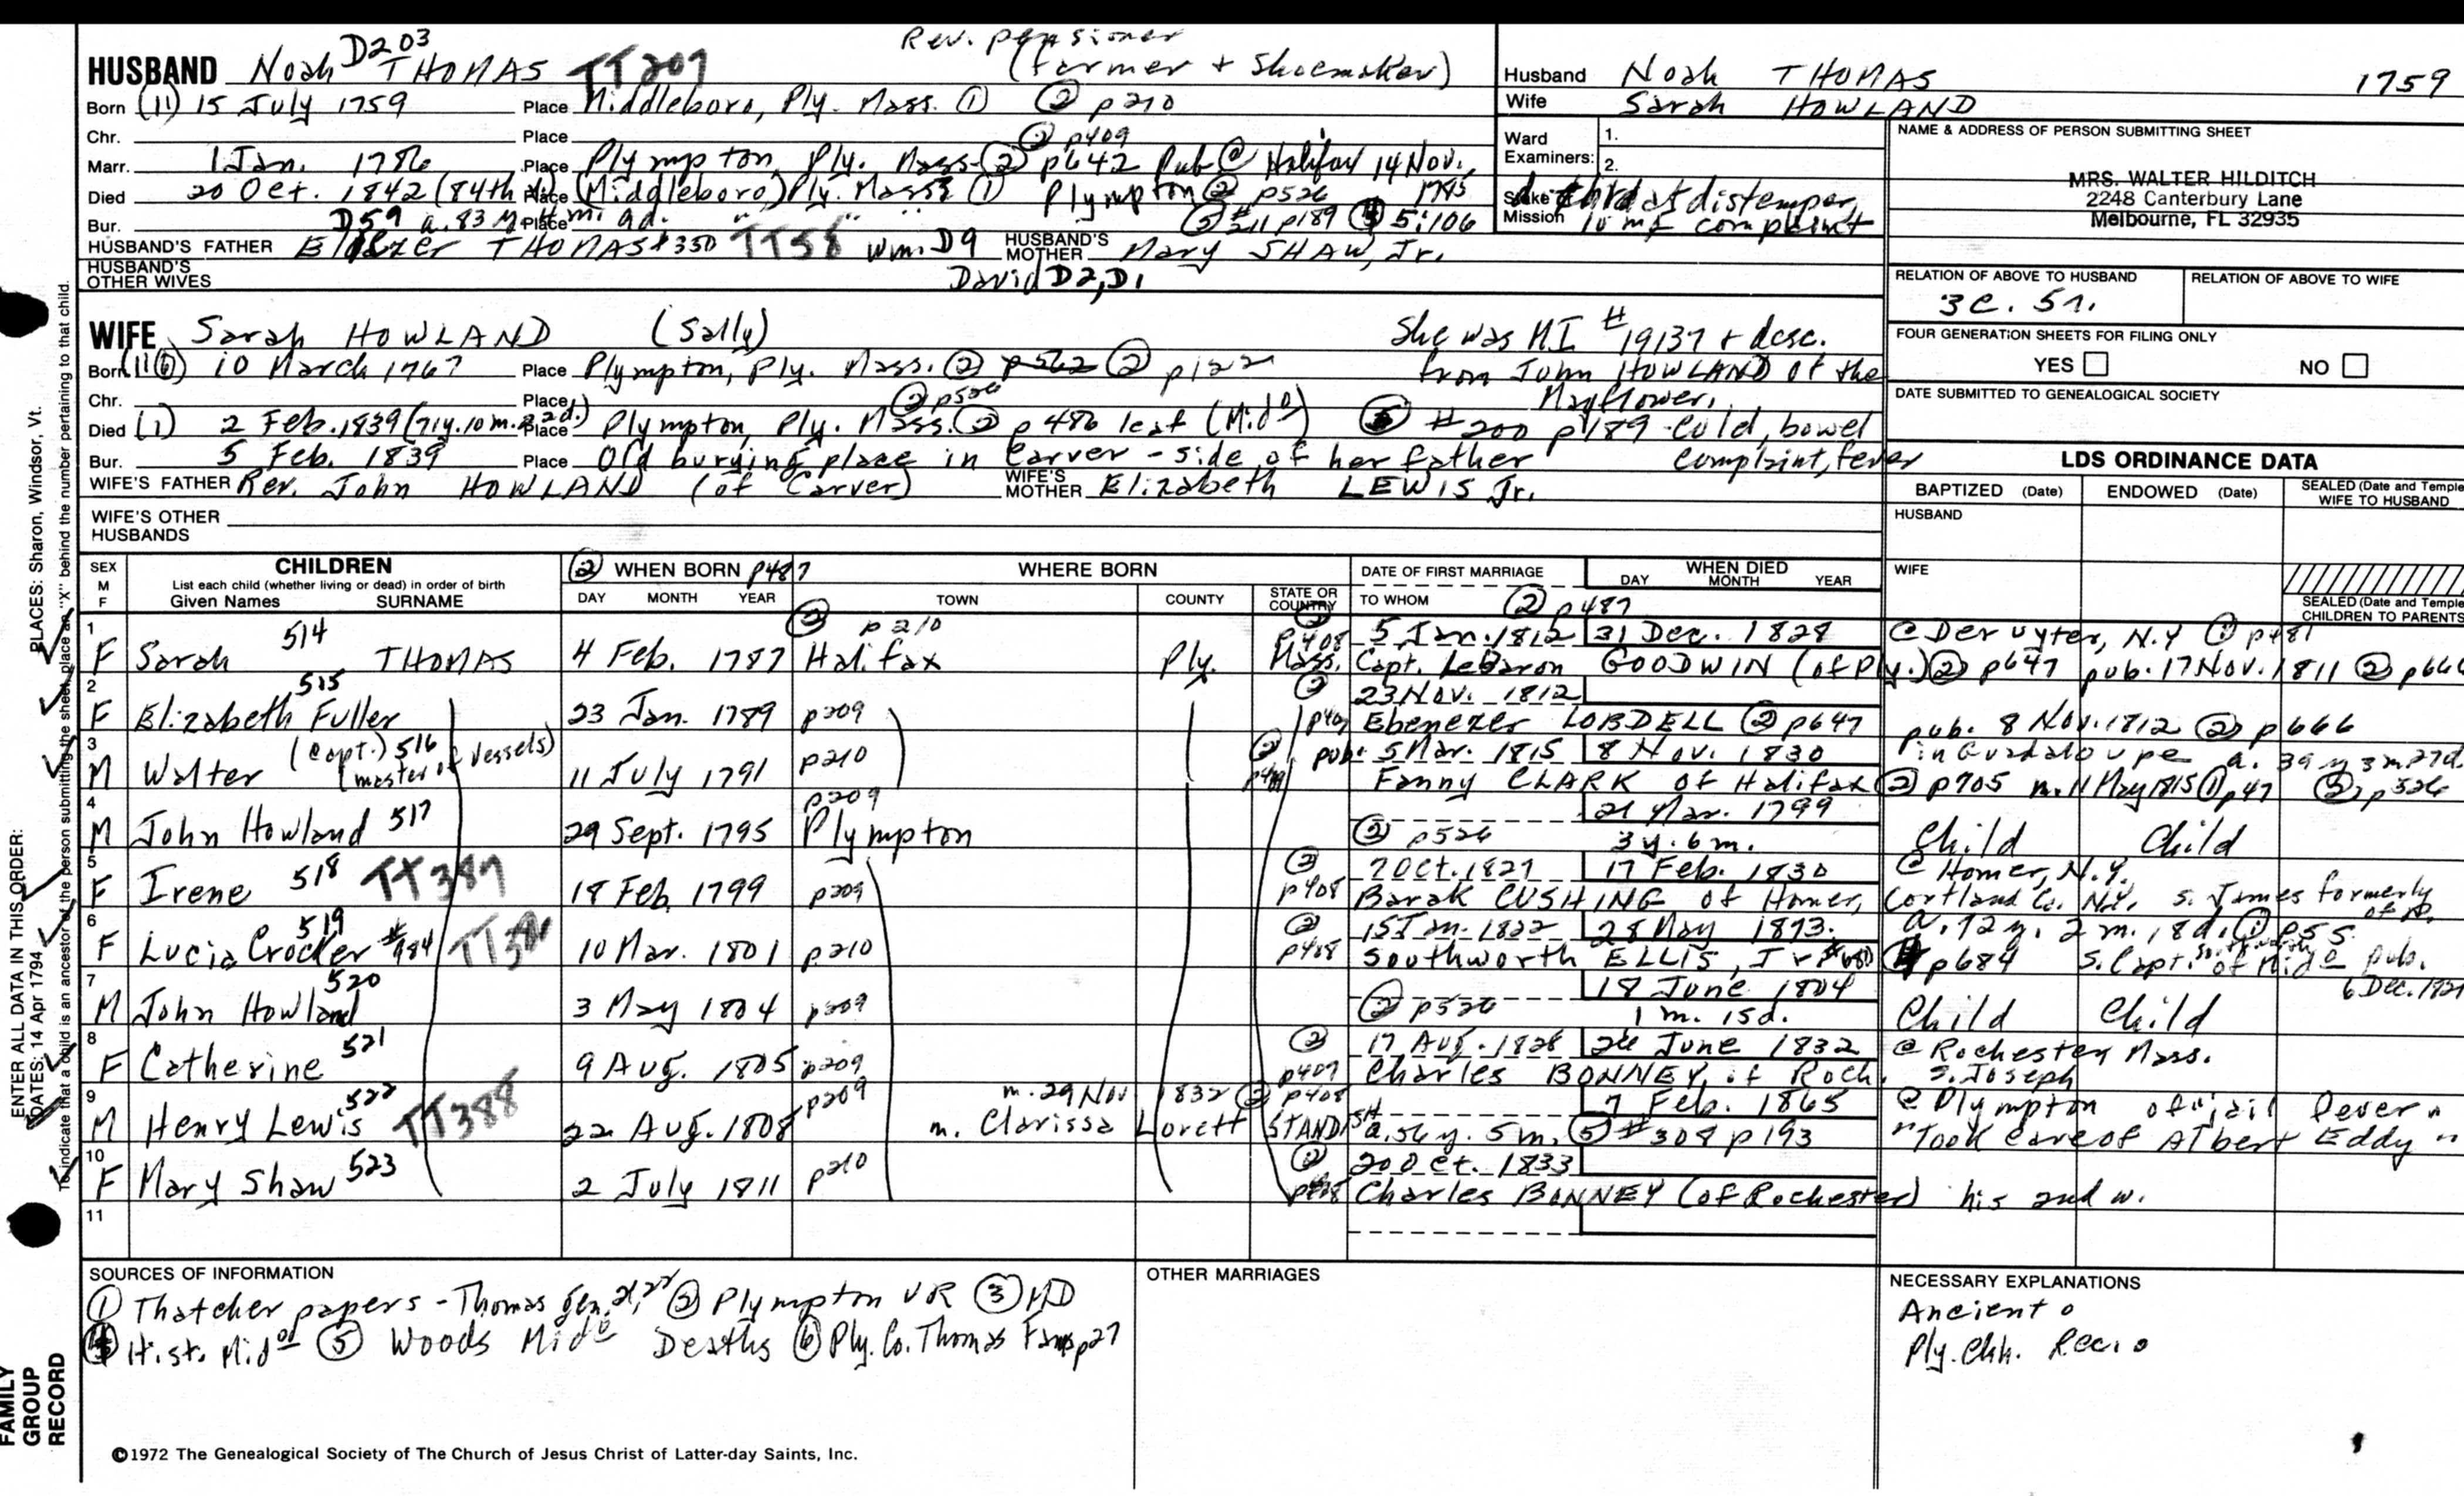 D203
Rev. pensioner
HUSBAND Noah THOMAS TT207 (farmer + Shoemaker)
Born (11) 15 July 1759 Place Middleboro, Ply. Mass. ① ② p210
Chr. Place ② p409
Marr. 1 Jan. 1786 Place Plympton, Ply. Mass. ② p642 Pub @ Halifax 14 Nov. 1785
Died 20 Oct. 1842 (84th Place (Middleboro) Ply. Mass ① Plympton ② p526
Bur. D59 a. 83 Place ⑤ #211 p189 ④ 5:106
HUSBAND'S FATHER THOMAS #350 TT58 Wm. D9 HUSBAND'S MOTHER Mary SHAW, Jr.
HUSBAND'S OTHER WIVES David D2, D1
Husband Noah THOMAS 1759
Wife Sarah HOWLAND
Ward Examiners: 1.
2.
Stake or Mission distemper,
complaint
NAME & ADDRESS OF PERSON SUBMITTING SHEET
MRS. WALTER HILDITCH
2248 Canterbury Lane
Melbourne, FL 32935
RELATION OF ABOVE TO HUSBAND RELATION OF ABOVE TO WIFE
3c. 5r.
FOUR GENERATION SHEETS FOR FILING ONLY
YES NO
DATE SUBMITTED TO GENEALOGICAL SOCIETY
WIFE Sarah HOWLAND (Sally) She was MI #19137 + desc.
Born (11⑥) 10 March 1767 Place Plympton, Ply. Mass. ② p562 ② p122 from John HOWLAND of the
Chr. Place ② p526 Mayflower.
Died (1) 2 Feb. 1839 (71y. 10m. 22d.) Place Plympton, Ply. Mass. ② p486 leaf (Mid⁰) ⑤ #200 p189 Cold, bowel
Bur. 5 Feb. 1839 Place Old burying place in Carver - side of her father complaint, fever
WIFE'S FATHER Rev. John HOWLAND (of Carver) WIFE'S MOTHER Elizabeth LEWIS Jr.
WIFE'S OTHER HUSBANDS
LDS ORDINANCE DATA
BAPTIZED (Date) ENDOWED (Date) SEALED (Date and Temple) WIFE TO HUSBAND
HUSBAND
WIFE
SEALED (Date and Temple) CHILDREN TO PARENTS
SEX M F CHILDREN ② WHEN BORN p487 WHERE BORN DATE OF FIRST MARRIAGE WHEN DIED
List each child (whether living or dead) in order of birth
Given Names SURNAME DAY MONTH YEAR TOWN COUNTY STATE OR COUNTRY TO WHOM DAY MONTH YEAR
② p487
1 514 ② p210 ② p408 5 Jan. 1812 31 Dec. 1828 @ DeRuyter, N.Y ① p481
F Sarah THOMAS 4 Feb. 1787 Halifax Ply. Mass. Capt. LeBaron GOODWIN (of Ply.) ② p647 pub. 17 Nov. 1811 ② p666
2 515 ② 23 Nov. 1812
F Elizabeth Fuller 23 Jan. 1789 p209 p409 Ebenezer LOBDELL ② p647 pub. 8 Nov. 1812 ② p666
3 (Capt.) 516 (master of Vessels) ② pub. 5 Mar. 1815 8 Nov. 1830 in Guadaloupe a. 39 y 3 m 27 d.
M Walter 11 July 1791 p210 p409 Fanny CLARK of Halifax ② p705 m. 11 May 1815 ① p47 ② p526
4 p209 21 Mar. 1799
M John Howland 517 29 Sept. 1795 Plympton ② p526 3 y. 6 m. Child Child
5 518 TT387 ② 7 Oct. 1827 17 Feb. 1830 @ Homer, N.Y.
F Irene 18 Feb. 1799 p209 p408 Barak CUSHING of Homer, Cortland Co. N.Y. s. James formerly
6 519 ② 15 Jan. 1822 28 May 1873. a. 72 y. 2 m. 18 d. ① p55
F Lucia Crocker #484 10 Mar. 1801 p210 p408 Southworth ELLIS, Jr. p684 s. Capt. Southworth of Mid⁰ pub. 6 Dec. 1821
7 520 18 June 1804
M John Howland 3 May 1804 p209 ② p526 1 m. 15 d. Child Child
8 521 ② 17 Aug. 1828 26 June 1832 @ Rochester Mass.
F Catherine 9 Aug. 1805 p209 p409 Charles BONNEY, of Roch. s. Joseph
9 522 TT388 p209 m. 29 Nov 1832 ② p408 7 Feb. 1865 @ Plympton of "jail fever"
M Henry Lewis 22 Aug. 1808 m. Clarissa Lovett STANDISH a. 56 y. 5 m. ⑤ #308 p193 "Took care of Albert Eddy"
10 523 ② 20 Oct. 1833
F Mary Shaw 2 July 1811 p210 p408 Charles BONNEY (of Rochester) his 2nd w.
11
SOURCES OF INFORMATION
① Thatcher papers - Thomas Gen. ② Plympton VR ③ MD
④ Hist. Mid⁰ ⑤ Woods Mid⁰ Deaths ⑥ Ply. Co. Thomas Fams p27
OTHER MARRIAGES
NECESSARY EXPLANATIONS
Ancient o
Ply. Chh. Rec. o
©1972 The Genealogical Society of The Church of Jesus Christ of Latter-day Saints, Inc.
ENTER ALL DATA IN THIS ORDER:
DATES: 14 Apr 1794 PLACES: Sharon, Windsor, Vt.
To indicate that a child is an ancestor of the person submitting the sheet, place an "X" behind the number pertaining to that child.
FAMILY GROUP RECORD